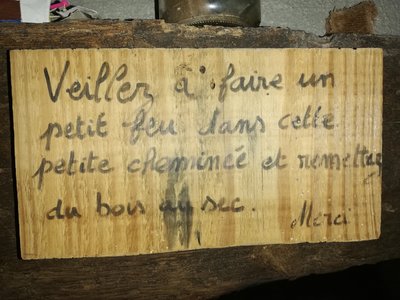 Veillez à faire un
petit feu dans cette
petite cheminée et remettre
du bois au sec.
Merci